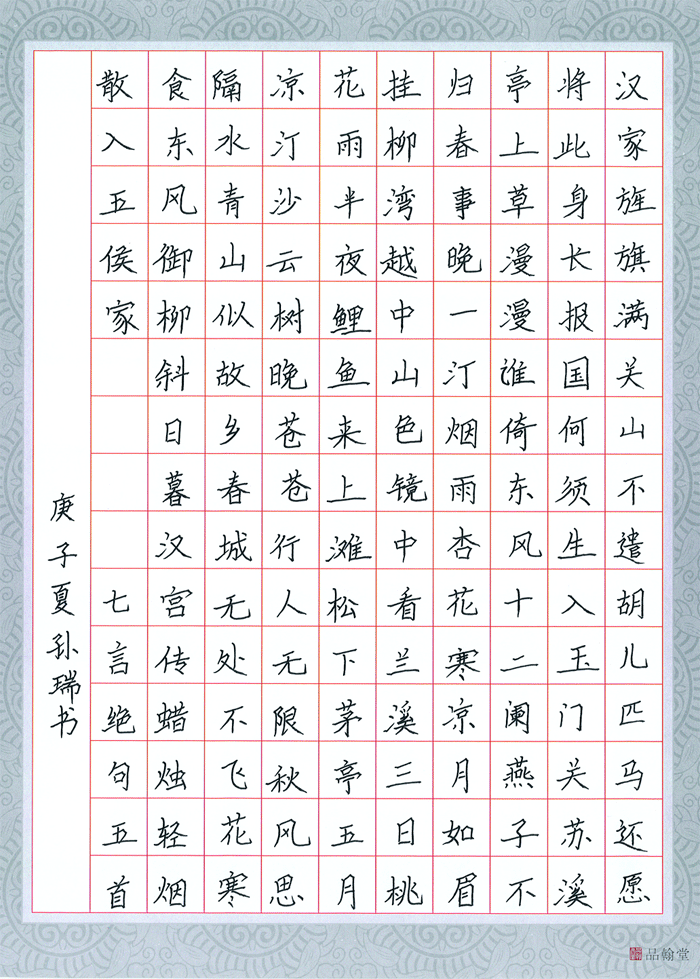 汉家旌旗满关山不遣胡儿匹马还愿
将此身长报国何须生入玉门关苏溪
亭上草漫漫谁倚东风十二阑燕子不
归春事晚一汀烟雨杏花寒凉月如眉
挂柳湾越中山色镜中看兰溪三日桃
花雨半夜鲤鱼来上滩松下茅亭五月
凉汀沙云树晚苍苍行人无限秋风思
隔水青山似故乡春城无处不飞花寒
食东风御柳斜日暮汉宫传蜡烛轻烟
散入五侯家 七言绝句五首
庚子夏孙瑞书
品翰堂